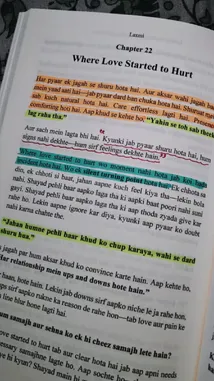 Laxmi
Chapter 22
Where Love Started to Hurt
Har pyaar ek jagah se shuru hota hai. Aur aksar wahi jagah
mein yaad aati hai—jab pyaar dard ban chuka hota hai. Shuruat
sab kuch natural hota hai. Care effortless lagti hai. Presence
comforting hoti hai. Aap khud se kehte ho: "Yahin se toh sab theek
lag raha tha."
Aur sach mein lagta bhi hai. Kyunki jab pyaar shuru hota hai, hum
signs nahi dekhte—hum sirf feelings dekhte hain.
Where love started to hurt wo moment nahi hota jab koi bada
incident hota hai. Wo ek silent turning point hota hai. Ek chhota sa
din, ek chhoti si baat, jahan aapne kuch feel kiya tha—lekin bola
nahi. Shayad pehli baar aapko laga tha ki aapki baat poori nahi suni
gayi. Shayad pehli baar aapko laga tha ki aap thoda zyada give kar
rahe ho. Lekin aapne ignore kar diya, kyunki aap pyaar ko doubt
nahi karna chahte the.
"Jahan humne pehli baar khud ko chup karaya, wahi se dard
shuru hua."
jagah par hum aksar khud ko convince karte hain. Aap kehte ho,
relationship mein ups and downs hote hain."
haan, hote hain. Lekin jab downs sirf aapko niche le ja rahe hon,
ups sirf aapko rukne ka reason de rahe hon—tab love aur pain ke
line blur hone lagti hai.
samajh aur sehna ko ek hi cheez samajh lete hain?
love started to hurt tab aur clear hota hai jab aap apni needs